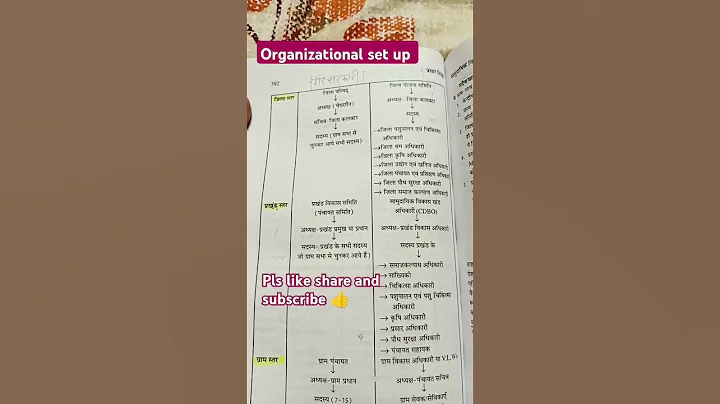 Organizational set up
392
प्रसार शिक्षा
जिला स्तर
जिला परिषद्
अध्यक्ष (चेयरमैन)
सचिव-जिला कलक्टर
सदस्य (ग्राम सभा से
चुनकर आये सभी सदस्य)
जिला योजना समिति
अध्यक्ष- जिला कलक्टर
सदस्य
→जिला पशुपालन एवं चिकित्सा
अधिकारी
→जिला श्रम अधिकारी
→जिला कृषि अधिकारी
→जिला उद्योग एवं खनिज अधिकारी
→जिला पंचायत एवं प्रशिक्षण अधिकारी
→ जिला पौध सुरक्षा अधिकारी
→ जिला समाज कल्याण अधिकारी
प्रखंड स्तर
प्रखंड विकास समिति
(पंचायत समिति)
अध्यक्ष-प्रखंड प्रमुख या प्रधान
सदस्य- प्रखंड के सभी सदस्य
जो ग्राम सभा से चुनकर आये हैं)
सामुदायिक विकास खंड
अधिकारी (CDBO)
अध्यक्ष-प्रखंड विकास अधिकारी
सदस्य प्रखंड के
→ समाजकल्याण अधिकारी
→ सांख्यिकी
→ चिकित्सा अधिकारी
→ पशुपालन एवं पशु चिकित्सा
अधिकारी
→ कृषि अधिकारी
→ प्रसार अधिकारी
→ पौध सुरक्षा अधिकारी
→ पंचायत सहायक
Pls like share and
subscribe 👍
ग्राम स्तर
ग्राम पंचायत
अध्यक्ष-ग्राम प्रधान
सदस्य (7-15)
ग्राम विकास अधिकारी या V.L.W)
अध्यक्ष-पंचायत सचिव
ग्राम सेवक/सेविकाएँ